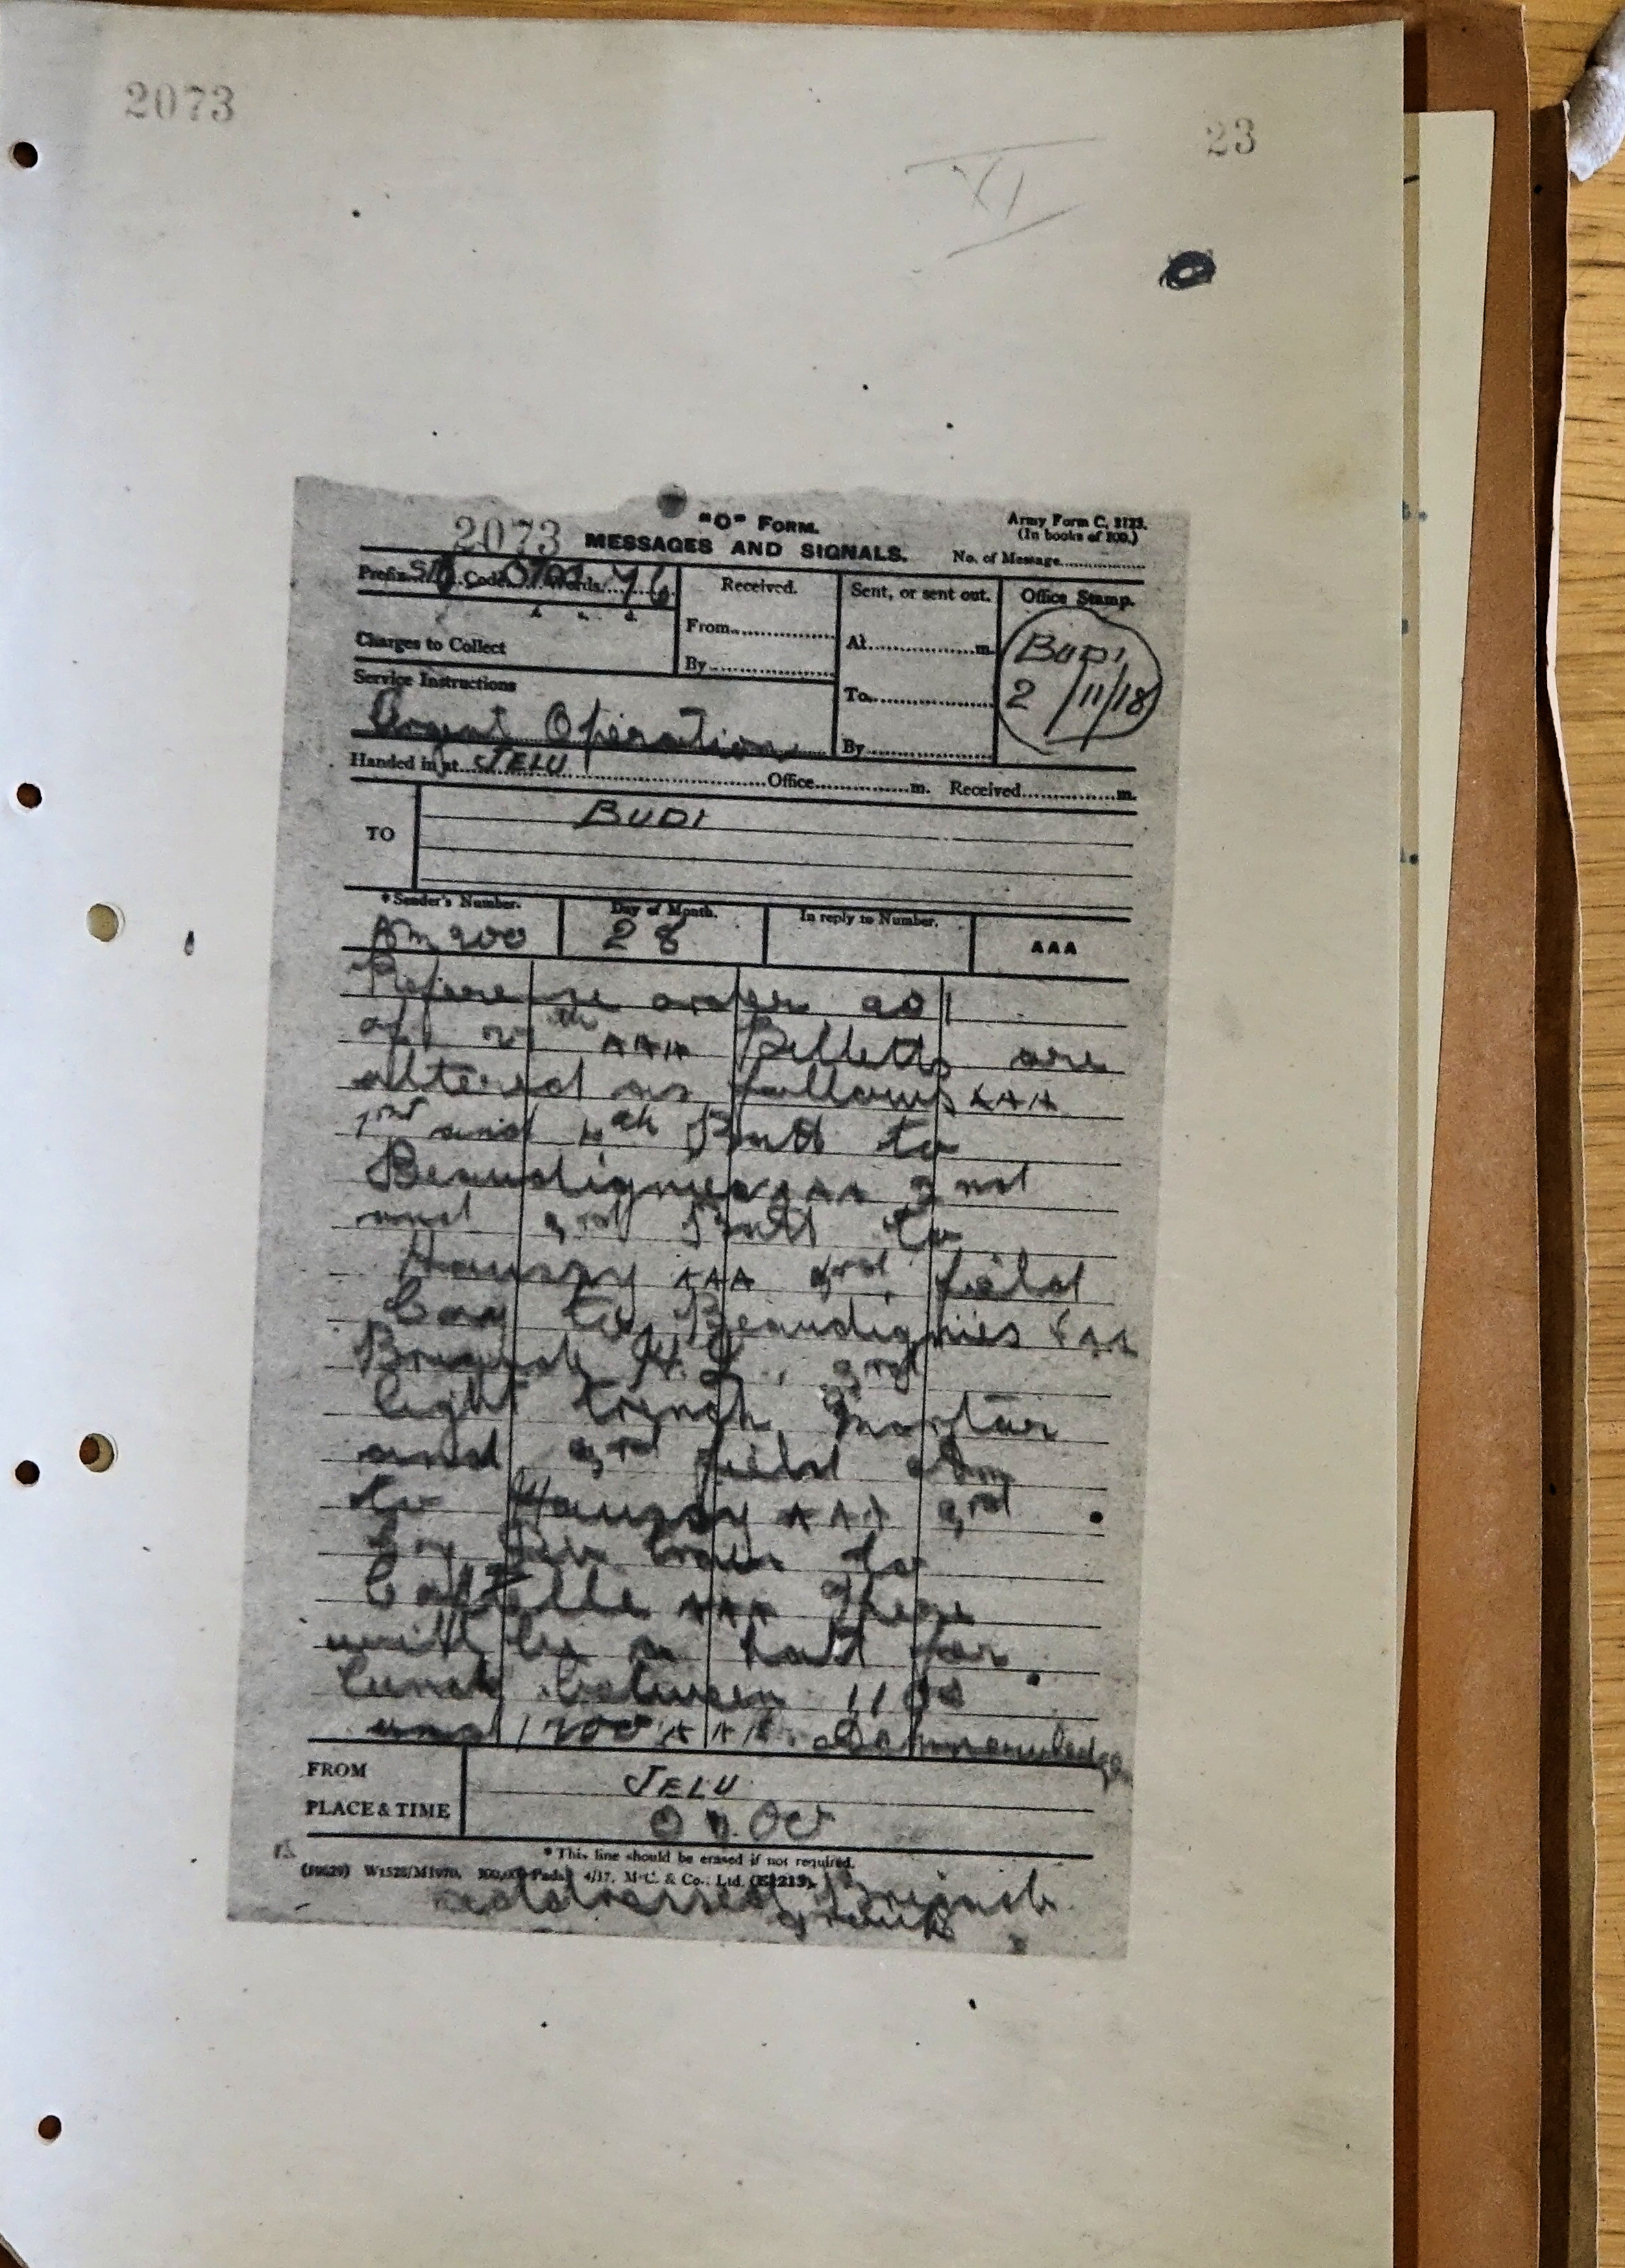 2073
23
XI
2073
"O" FORM.
MESSAGES AND SIGNALS.
Army Form C. 2123.
(In books of 100.)
No. of Message
Prefix Code Words 76
Received.
Sent, or sent out.
Office Stamp.
Charges to Collect
From
By
At m.
To
By
BUDI
2/11/18
Service Instructions
Urgent Operation
Handed in at JELU Office m. Received m.
TO
BUDI
*Sender's Number.
Day of Month.
In reply to Number.
AAA
Bm 200
28
Reference order 201
of 27th AAA Billetts are
altered as follows AAA
1st and 4th Batt to
Beaudignies AAA 2nd
and 3rd Batt to
Haussy AAA 3rd field
Coy to Beaudignies AAA
Brigade H.Q., 3rd
light trench mortar
and 3rd field Am
to Haussy AAA 3rd
Coy Div train to
AAA There
will be a halt for
lunch between 1100
and 1200 AAA Acknowledge
FROM
PLACE & TIME
JELU
*This line should be erased if not required.
W1528/M1970. 4/17. M'C. & Co., Ltd. (E1213).
addressed Brigade
group